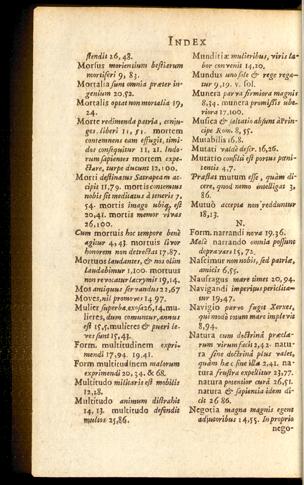 INDEX
stendit 26, 48.
Morsus morientium bestiarum
mortiferi 9, 83.
Mortalia sunt omnia præter in-
genium 20.52.
Mortalis optat non mortalia 19,
24.
Morte redimenda patria, conju-
ges, liberi 11, 51. mortem
contemnens eam effugit, timi-
dos consequitur 11, 21.
mortem expe-
ctare, turpe ducunt 12, 100.
Morti destinatus
11.79. mortis contemtus
nobis sit meditatus à teneris 7,
54. mortis imago ubiq, est
20,41. mortis memor vivas
26,100.
Cum mortuis hoc tempore benè
agitur 4,43 mortuis favor
honorem non detrectas 17.87.
Mortuos laudantes, & nos olim
laudabimur 1,100. mortuus
non revocatur lacrymis 19,14.
Mos antiquus servandus 21,67
Moves, nil promoves 14.97.
Mulier superba, 26,14.mu-
lieres, dum comuntur, annus
est 15,5.mulieres & pueri le-
ves sunt 15,43.
Form. multitudinem expri-
mendi 17,94. 19,41.
Form multitudinem malorum
exprimendi 20,34. & 68.
Multitudo militaris est mobilis
12,18.
Multitudo animum distrahit
14, 13. multitudo defendit
multos 25,86.
Munditiæ mulieribus, viris la-
bor convenit 14,10,
Mundus uno sole & rege rega-
tur 9,19. v. sol.
Munera parva firmiora magnis
8,34. munera promissis ube-
riora 17.100.
Musica & saltatio absunt à Prin-
cipe Rom. 8, 55.
Mutabilis 16.8.
Mutati valdè dissr. 16,26.
Mutatio consilii est portus pæni-
tentis 4,7.
Præstas mutum esse, quàm di-
cere, quod nemo intelligat 3,
86.
Mutuò accepta non redduntur
18,13.
N.
Form. narrandi nova 19.36.
Malè narrando omnia possunt
depravari 15,72.
Nascimur non nobis, sed patriæ,
amicis 6,55.
Naufragus mare times 20, 94.
Navigandi imperitus pericilita-
tur 19,47.
Navigio parvo fugit Xerxes,
qui modò totum mare implevit
8,94.
Natura cum doctrinâ præcla-
rum virum facit 2,42. natu-
ra sine doctrinâ plus valet,
quàm hæc sine illa 2,41. na-
tura frustra expellitur 23,77.
natura potentior curâ 26,51.
natura & sapientia idem di-
cit 26 86.
Negotia magna magnis egent
adjutoribus 14,55. In proprio
nego-